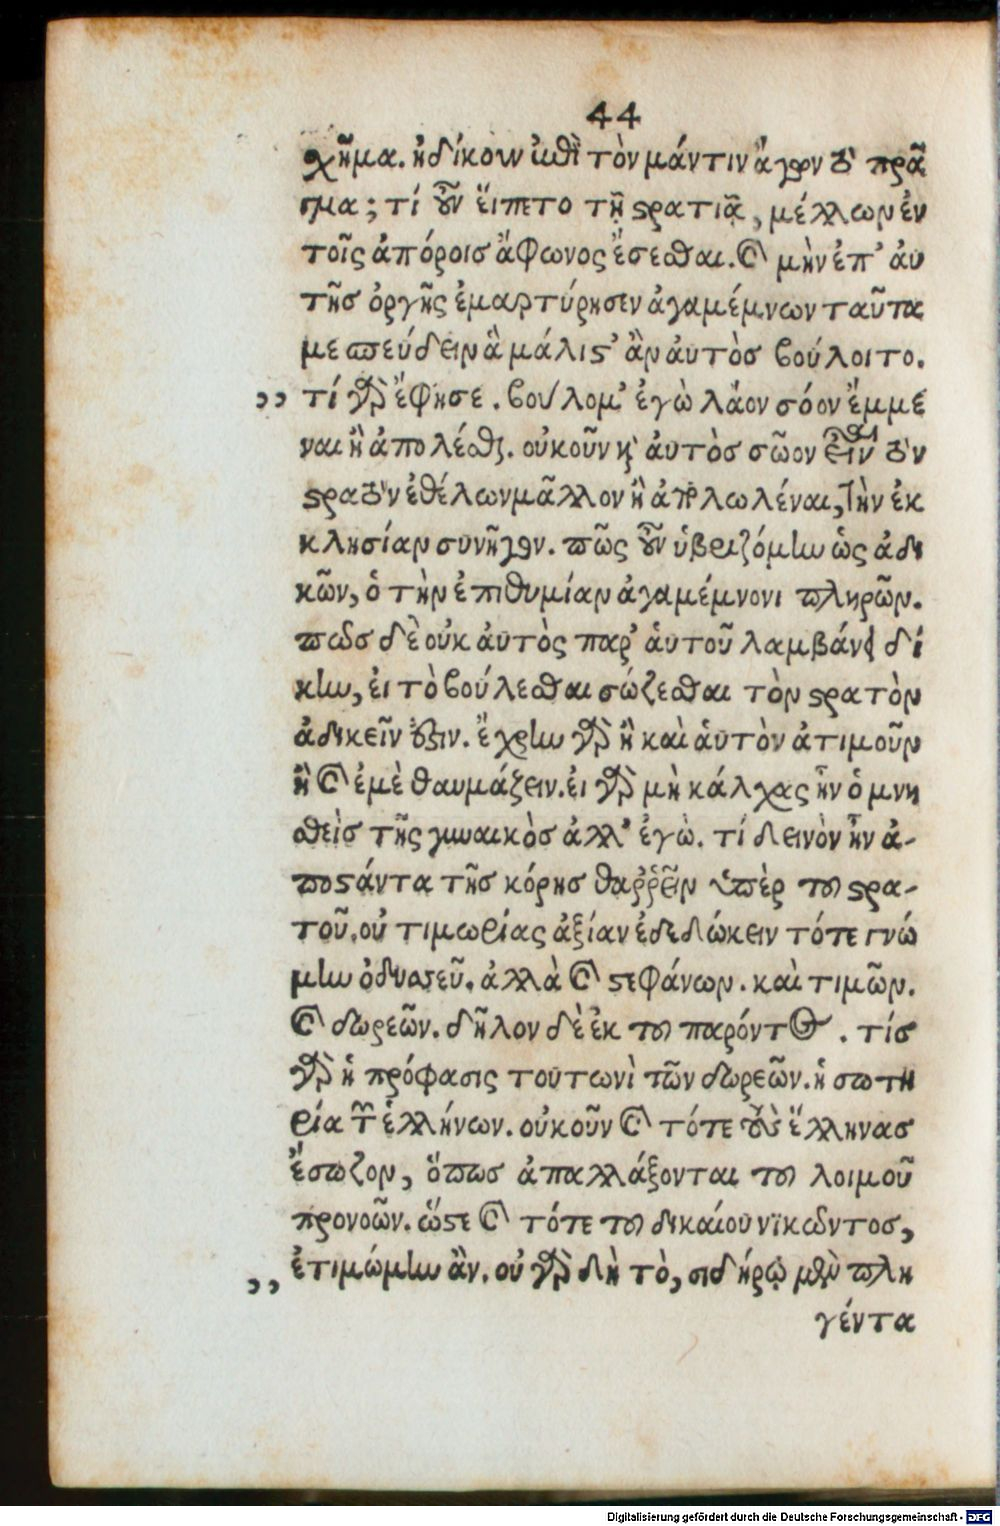 44
χῆμα. ἠδίκουν τὸν μάντιν ἄγων τὸ πρᾶ
γμα; τί οὖν εἵπετο τῇ στρατιᾷ, μέλλων ἐν
τοῖς ἀπόροις ἄφωνος ἔσεσθαι. καὶ μὴν ἐπ’ αὐ
τῆς ὀργῆς ἐμαρτύρησεν ἀγαμέμνων ταῦτα
με σπεύδειν ἃ μάλιστ’ ἂν αὐτὸς βούλοιτο.
,, τί γὰρ ἔφησε. βούλομ’ ἐγὼ λάον σόον ἔμμε
ναι ἢ ἀπολέσθαι. οὐκοῦν καὶ αὐτὸς σῶον εἶναι τὸν
στρατὸν ἐθέλων μᾶλλον ἢ ἀπολωλέναι, τὴν ἐκ
κλησίαν συνῆγον. πῶς οὖν ὑβριζόμην ὡς ἀδι
κῶν, ὁ τὴν ἐπιθυμίαν ἀγαμέμνονι πληρῶν.
πῶς δὲ οὐκ αὐτὸς παρ’ ἁυτοῦ λαμβάνει δί
κην, ἐι τὸ βούλεσθαι σώζεσθαι τὸν στρατὸν
ἀδικεῖν ἐστιν. ἔχρην γὰρ ἢ καὶ ἁυτὸν ἀτιμοῦν
ἢ καὶ ἐμὲ θαυμάζειν. ἐι γὰρ μὴ κάλχας ἦν ὁ μνη
σθεὶς τῆς γυναικὸς ἀλλ’ ἐγὼ. τί δεινὸν ἦν ἀ-
ποστάντα τῆς κόρης θαῤῥεῖν ὑπὲρ τοῦ στρα-
τοῦ. οὐ τιμωρίας ἀξίαν ἐδεδώκειν τότε γνώ
μην ὀδυσσεῦ. ἀλλὰ καὶ στεφάνων. καὶ τιμῶν.
καὶ δωρεῶν. δῆλον δὲ ἐκ τοῦ παρόντος. τίς
γὰρ ἡ πρόφασις τουτωνὶ τῶν δωρεῶν. ἡ σωτη
ρία τῶν ἑλλήνων. οὐκοῦν καὶ τότε τοὺς ἕλληνας
ἔσωζον, ὅπως ἀπαλλάξονται τοῦ λοιμοῦ
προνοῶν. ὥστε καὶ τότε τοῦ δικαίου νικῶντος,
,, ἐτιμώμην ἂν. οὐ γὰρ δὴ τὸ, σιδήρῳ μὲν πλη
γέντα
Digitalisierung gefördert durch die Deutsche Forschungsgemeinschaft - DFG